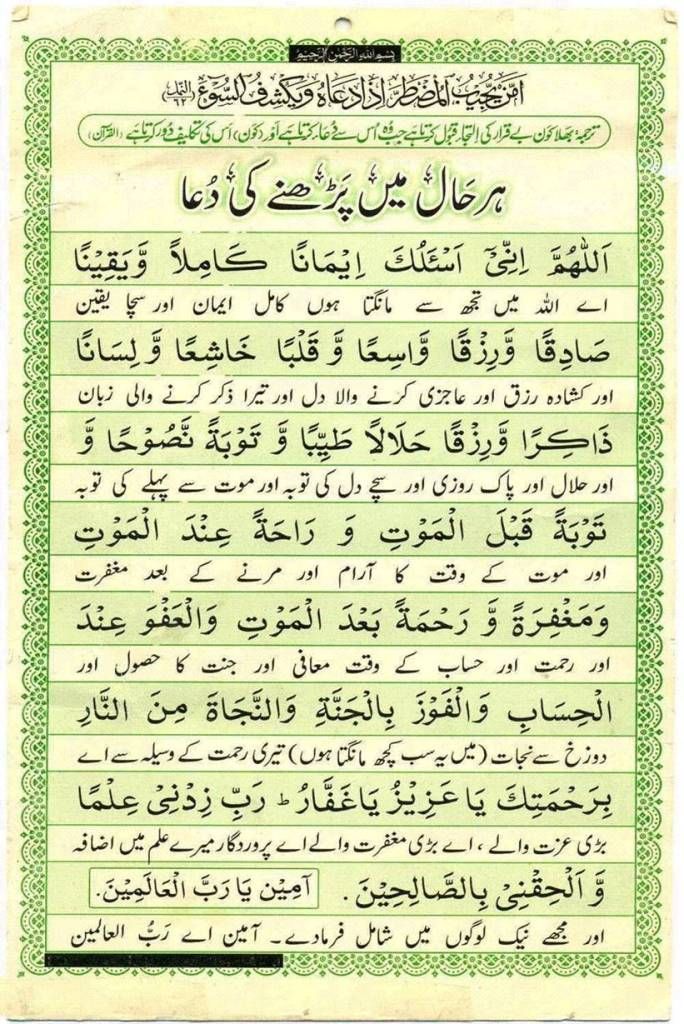 بسم الله الرحمن الرحيم
اَمَّنْ يُّجِيْبُ الْمُضْطَرَّ اِذَا دَعَاهُ وَيَكْشِفُ السُّوْٓءَ (النمل ٦٢)
ترجمہ: بھلا کون بے قرار کی التجا قبول کرتا ہے جب وہ اُس سے دُعا کرتا ہے اور (کون) اُس کی تکلیف دُور کرتا ہے (القرآن)
ہر حَال میں پَڑھنے کی دُعا
اَللّٰهُمَّ اِنِّیْٓ اَسْئَلُكَ اِیْمَانًا كَامِلاً وَّیَقِیْنًا
اے اللہ میں تجھ سے مانگتا ہوں کامل ایمان اور سچا یقین
صَادِقًا وَّرِزْقًا وَّاسِعًا وَّ قَلْبًا خَاشِعًا وَّ لِسَانًا
اور کشادہ رزق اور عاجزی کرنے والا دل اور تیرا ذکر کرنے والی زبان
ذَاكِرًا وَّرِزْقًا حَلَالًا طَیِّبًا وَّ تَوْبَةً نَّصُوْحًا وَّ
اور حلال اور پاک روزی اور سچے دل کی توبہ اور موت سے پہلے کی توبہ
تَوْبَةً قَبْلَ الْمَوْتِ وَ رَاحَةً عِنْدَ الْمَوْتِ
اور موت کے وقت کا آرام اور مرنے کے بعد مغفرت
وَمَغْفِرَةً وَّ رَحْمَةً بَعْدَ الْمَوْتِ وَالْعَفْوَ عِنْدَ
اور رحمت اور حساب کے وقت معافی اور جنت کا حصول اور
الْحِسَابِ وَالْفَوْزَ بِالْجَنَّةِ وَالنَّجَاةَ مِنَ النَّارِ
دوزخ سے نجات (میں یہ سب کچھ مانگتا ہوں) تیری رحمت کے وسیلہ سے اے
بِرَحْمَتِكَ یَا عَزِیْزُ یَا غَفَّارُ ط رَبِّ زِدْنِیْ عِلْمًا
بڑی عزت والے ، اے بڑی مغفرت والے اے پروردگار میرے علم میں اضافہ
وَّ اَلْحِقْنِیْ بِالصَّالِحِیْنَ . آمِیْن یَا رَبَّ الْعَالَمِیْنَ.
اور مجھے نیک لوگوں میں شامل فرمادے۔ آمین اے رَبُّ العالمین